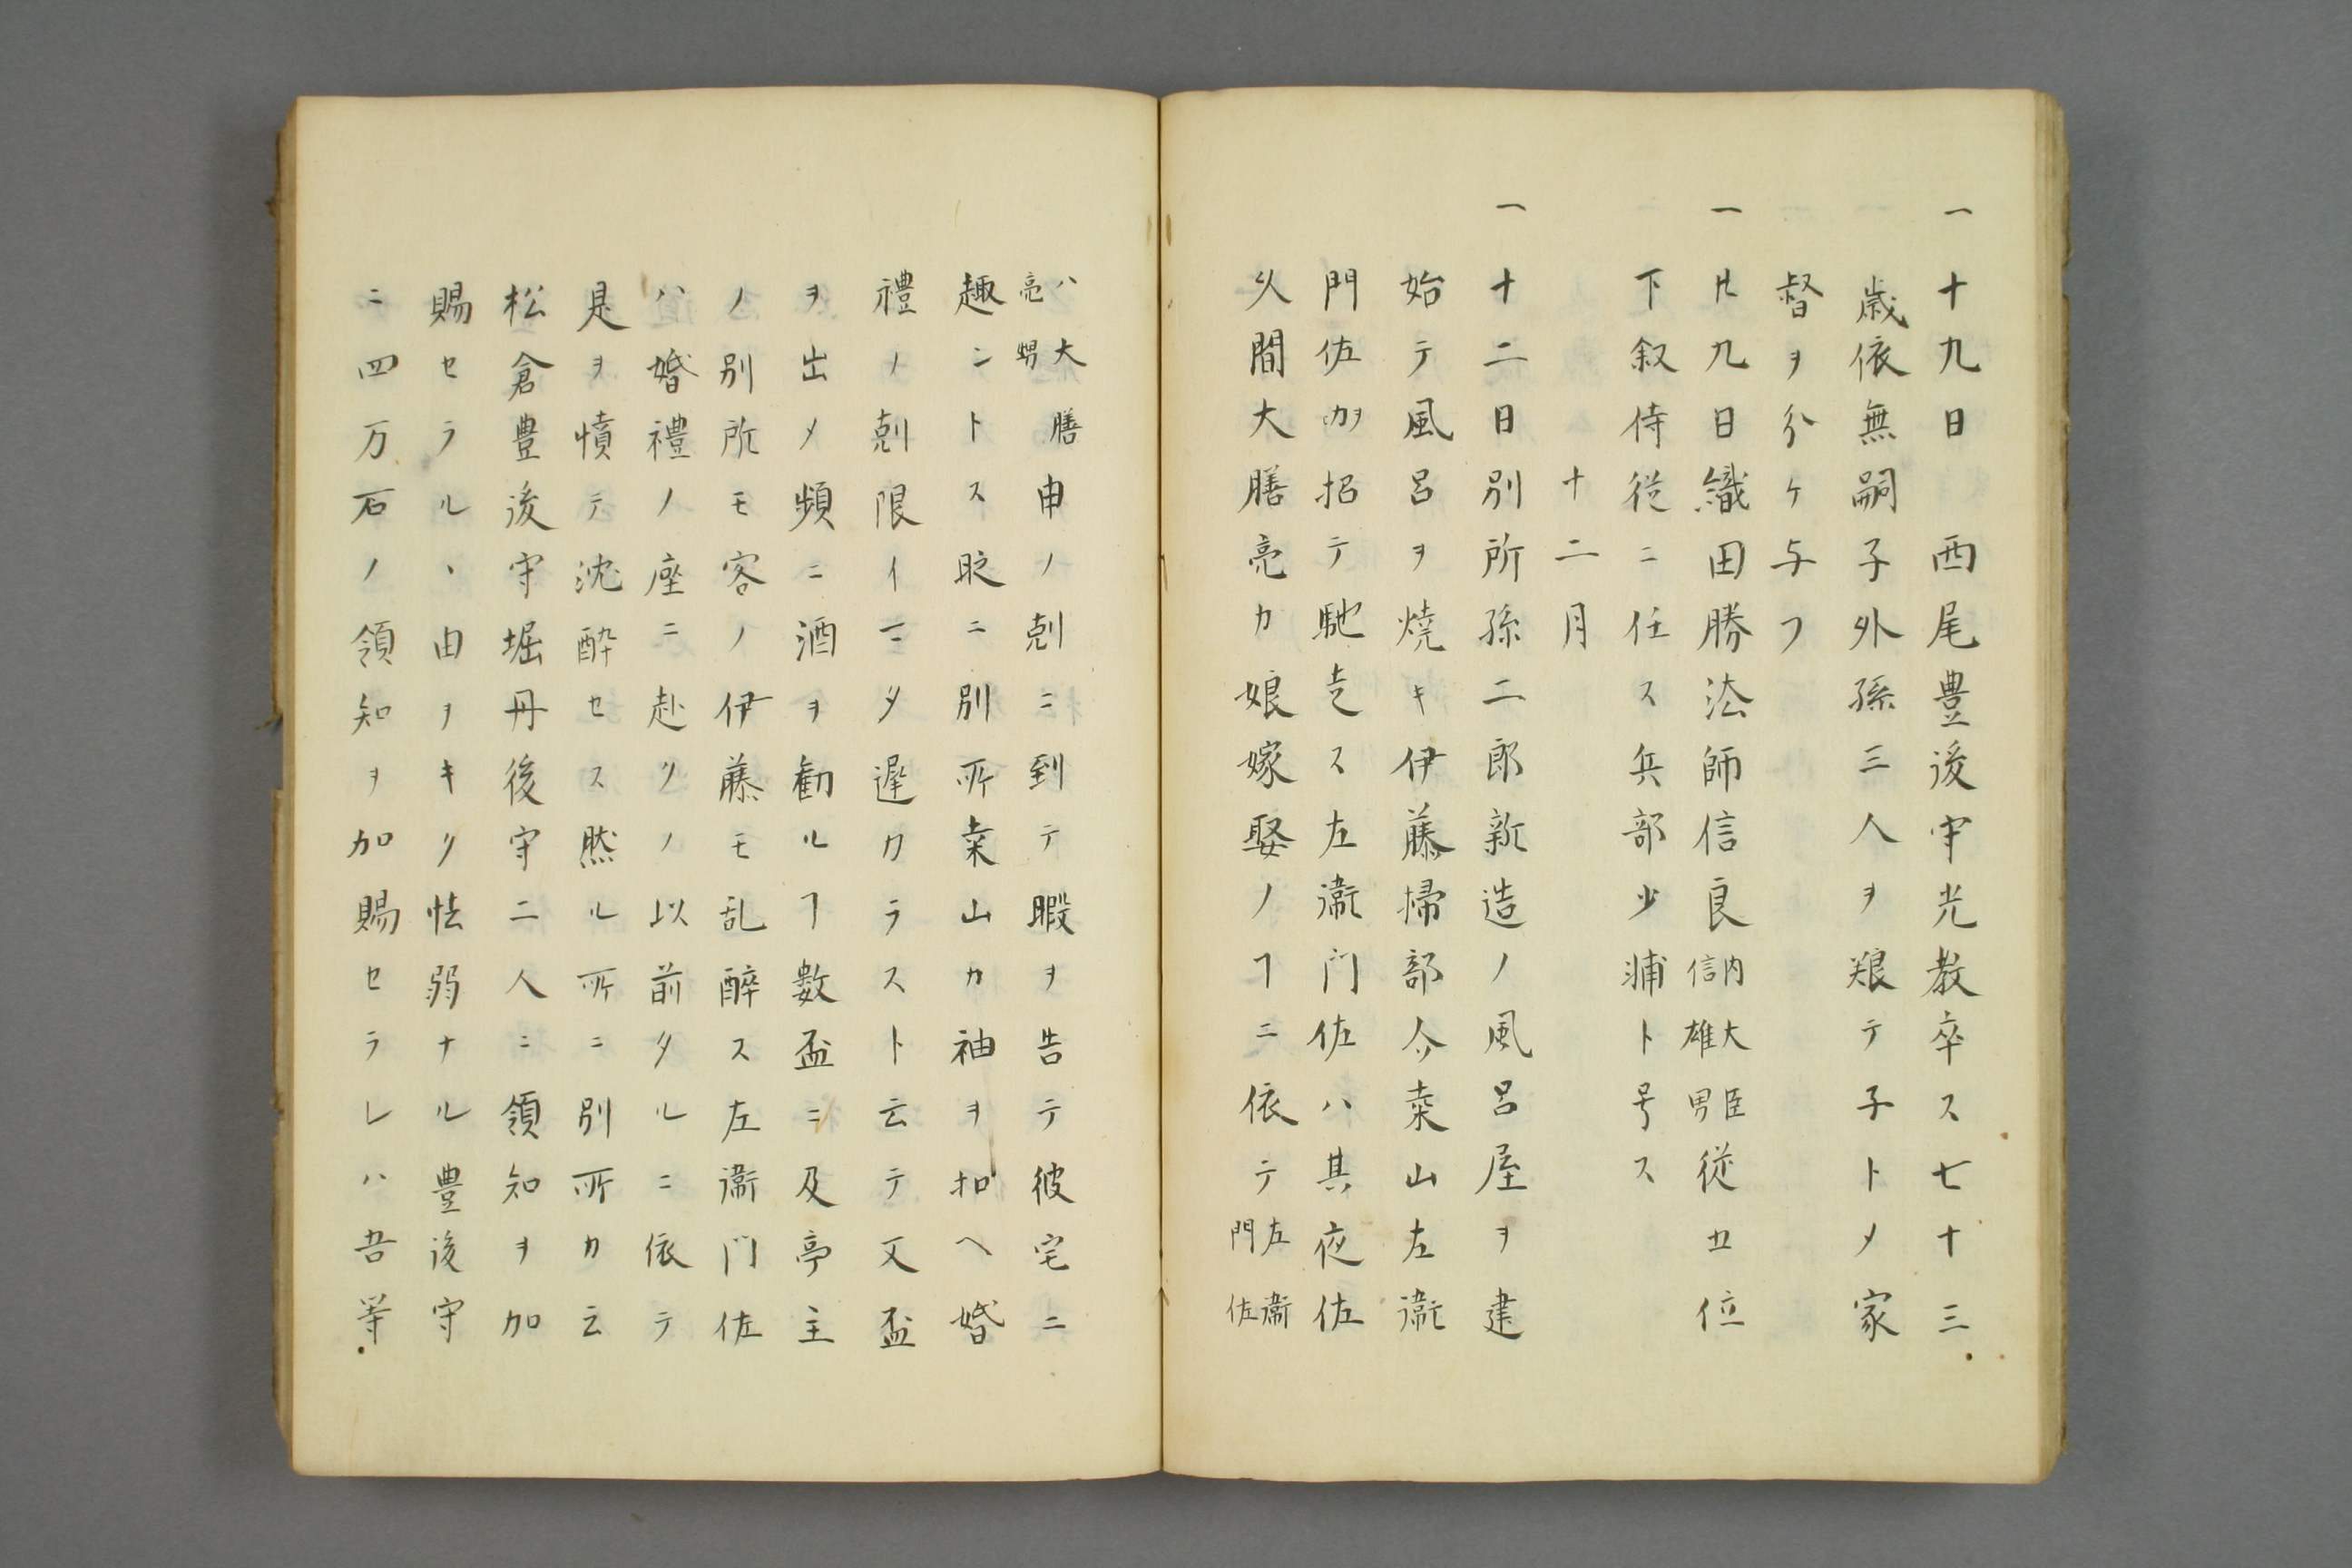 一十九日　西尾豊後守光教卒ス七十三
歳依無嗣子外孫三人ヲ艱テ子トメ家
督ヲ分ケ与フ
一廿九日織田勝法師信良内大臣信雄男従五位
下叙侍従ニ任ス兵部少浦ト号ス
十二月
一十二日別所孫二郎新造ノ風呂屋ヲ建
始テ風呂ヲ焼キ伊藤掃部介桒山左衛
門佐カヲ招テ馳走ス左衛門佐ハ其夜佐
久間大膳亮カ娘嫁娶ノヿニ依テ左衛門佐
ハ大膳亮甥申ノ剋ニ到テ暇ヲ告テ彼宅ニ
趣ントス眨ニ別所桒山カ袖ヲ扣ヘ婚
禮ノ剋限イマタ遅カラスト云テ又盃
ヲ出メ頻ニ酒ヲ勧ルヿ數盃ニ及亭主
ノ別所モ客ノ伊藤モ乱醉ス左衛門佐
ハ婚禮ノ座ニ赴クノ以前タルニ依テ
是ヲ憤テ沈酔セス然ル所ニ別所カ云
松倉豊後守堀丹後守二人ニ領知ヲ加
賜セラルヽ由ヲキク怯弱ナル豊後守
ニ四万石ノ領知ヲ加賜セラレハ吾等